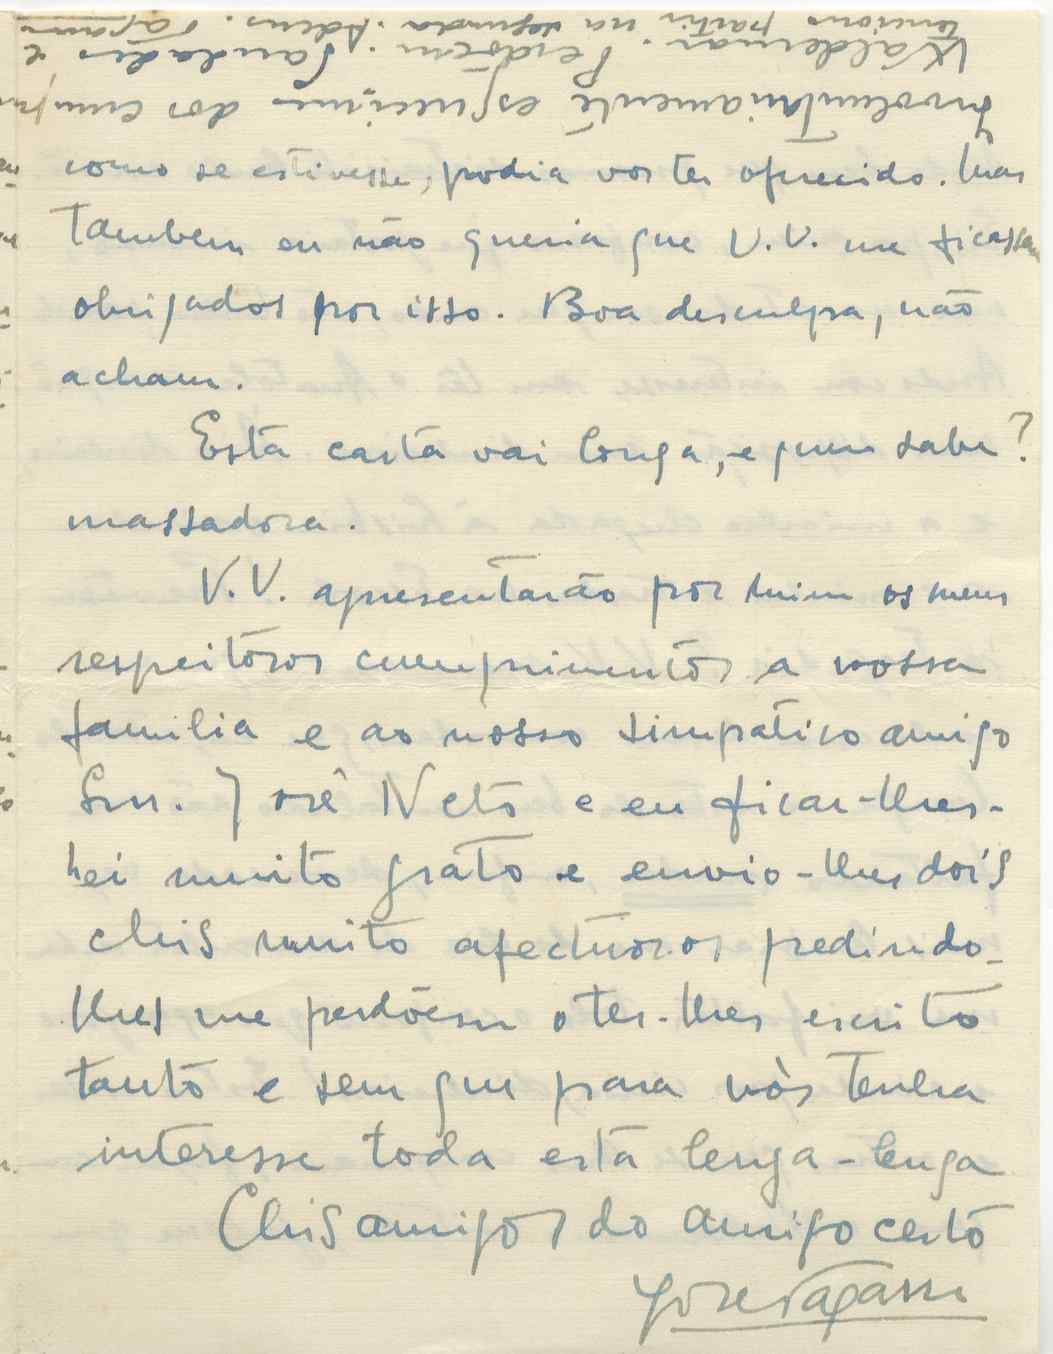 como se estivesse, podia vos ter oferecido. Mas
tambem eu não queria que V.V. me ficassem
obrigados por isso. Boa desculpa, não
acham.
Esta carta vai longa, e quem sabe?
massadora.
V.V. apresentarão por mim os meus
respeitosos cumprimentos a vossa
familia e ao nosso simpatico amigo
Snr. José Neto e eu ficar-lhes-
hei muito grato e envio-lhes dois
chis muito afectuosos pedindo-
lhes me perdõem o ter-lhes escrito
tanto e sem que para vòs tenha
interesse toda esta lenga-lenga
Chis amigos do amigo certo
José Tagarro
Involuntariamente esqueci-me dos cumpri
Waldemar. Perdõem. Saudades e
tenciono partir na segunda. Adeus. Tagarro